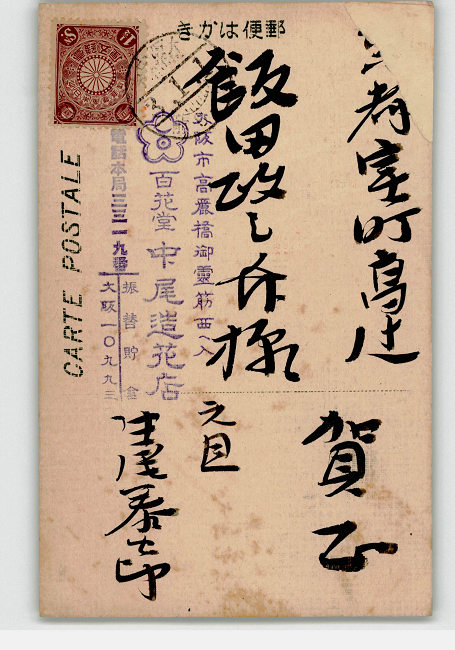 郵便はかき
京都室町高辻
飯田政之助様
賀正
元旦
中尾泰治郎
大阪市高麗橋御霊筋西へ入
百花堂 中尾造花店
電話本局三三一九番
振替貯金
大阪一〇九九三
CARTE POSTALE